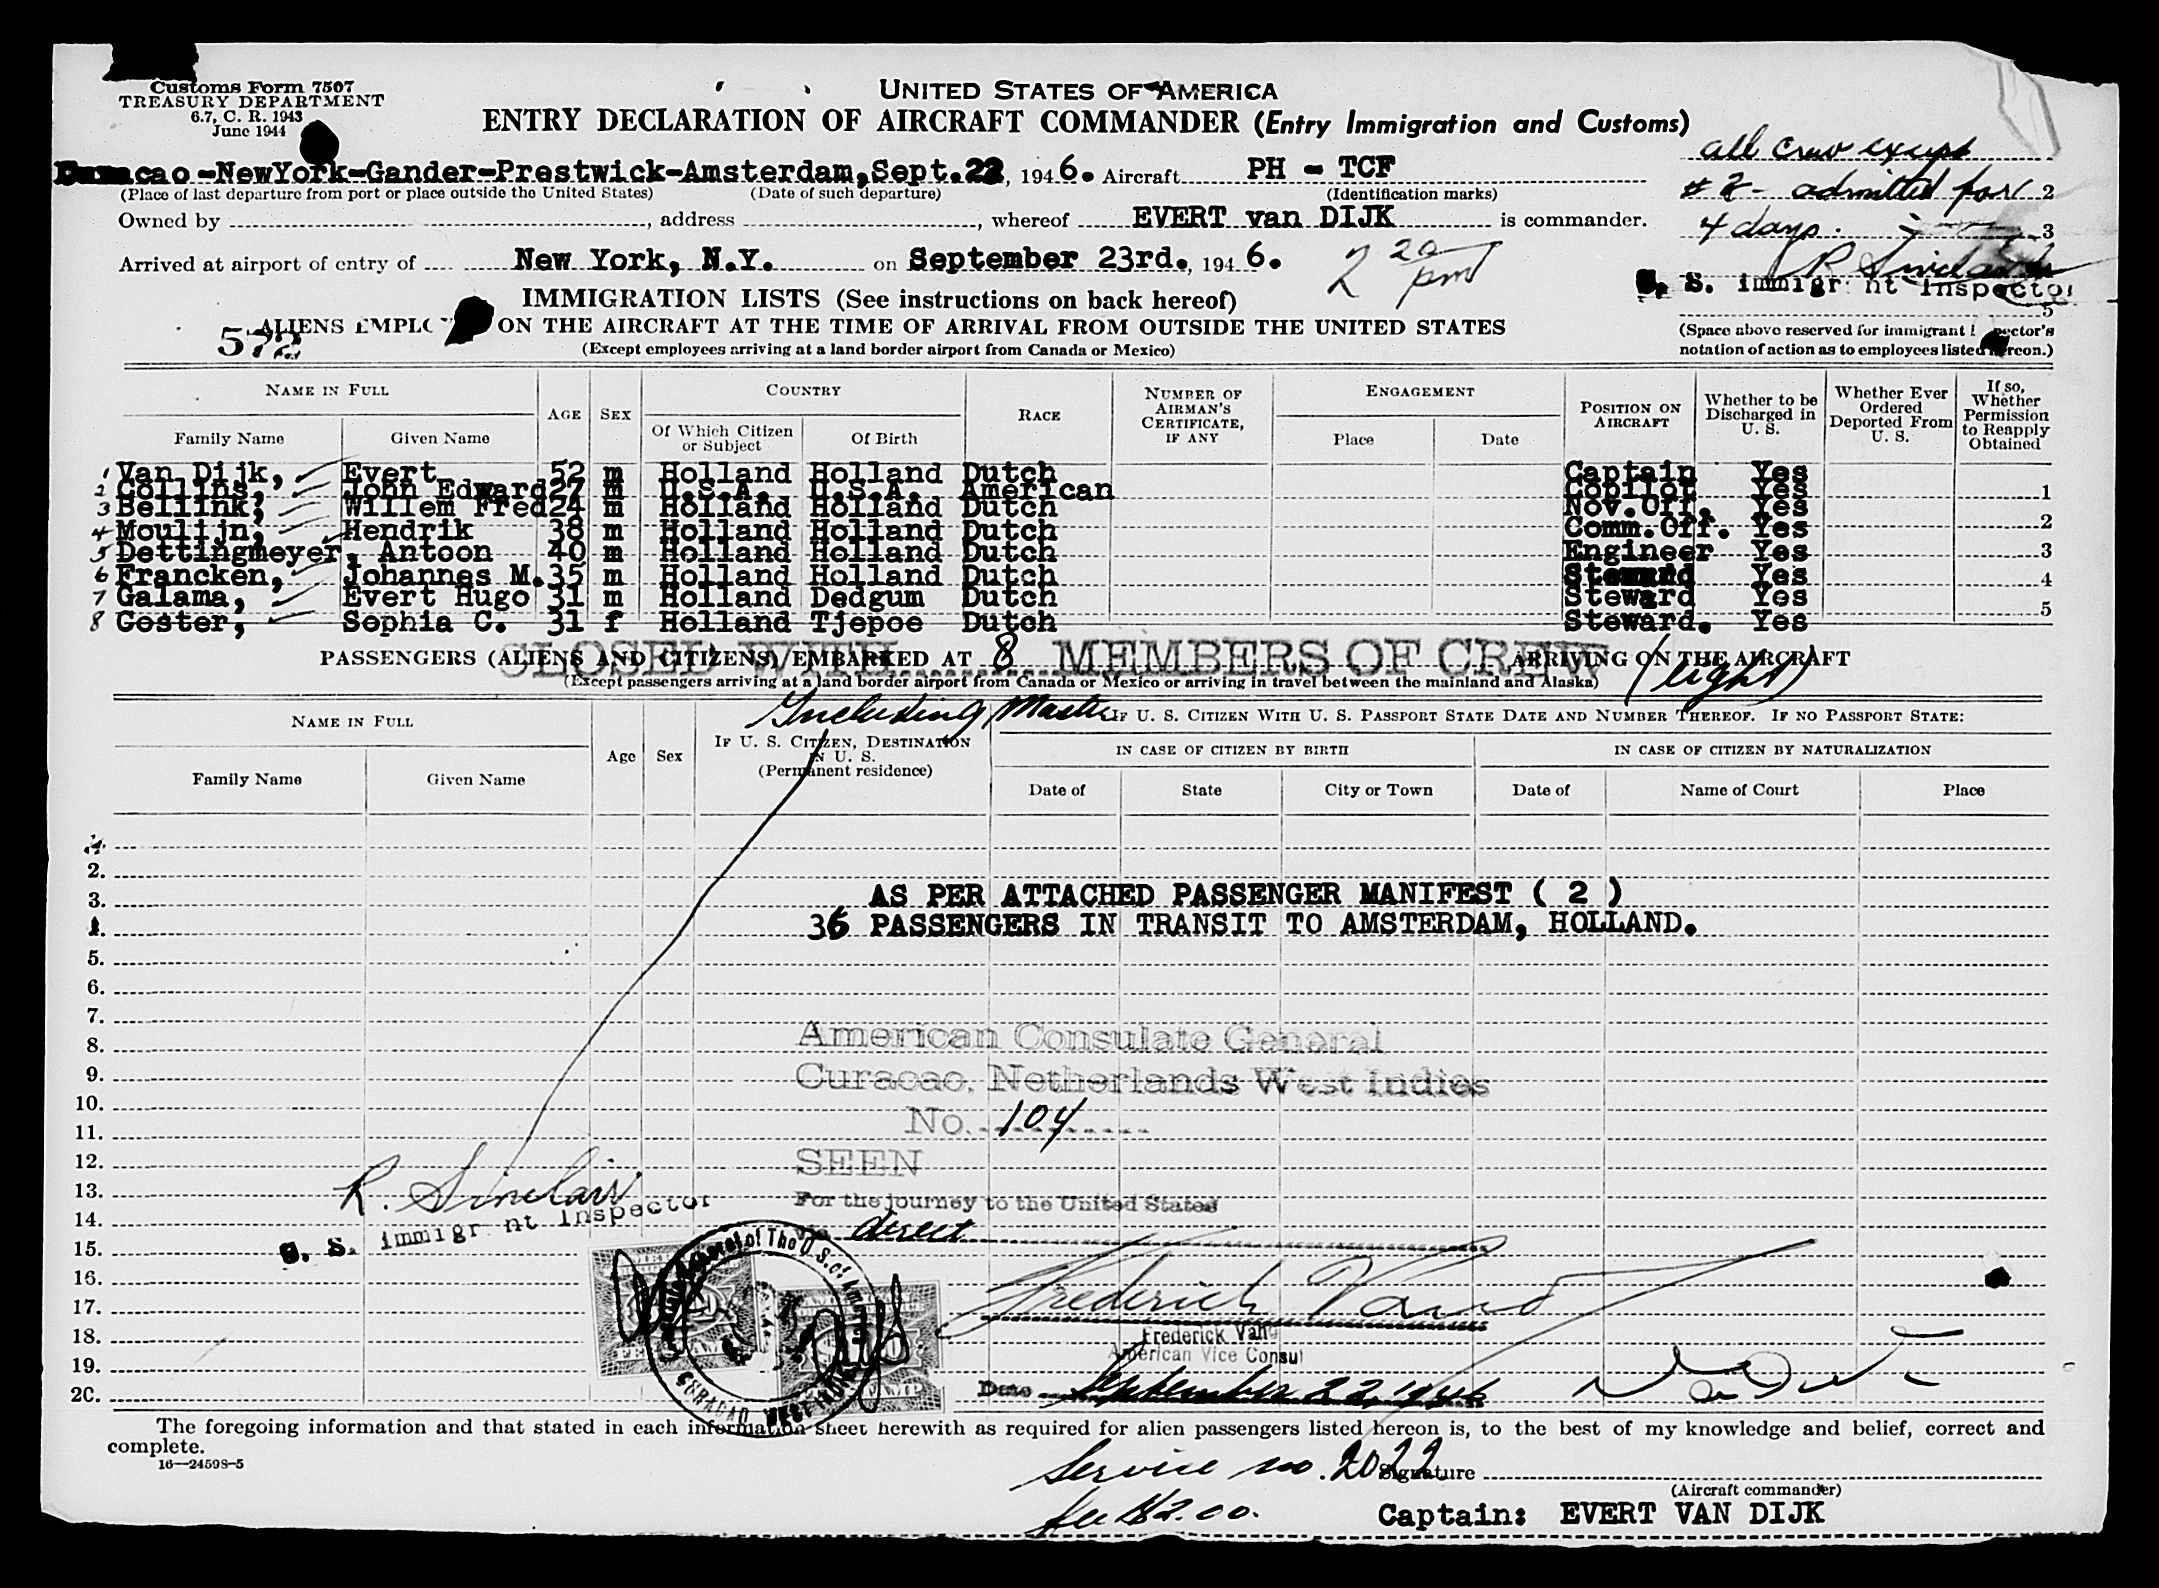 Customs Form 7507
TREASURY DEPARTMENT
6.7, C. R. 1943
June 1944
UNITED STATES OF AMERICA
ENTRY DECLARATION OF AIRCRAFT COMMANDER (Entry Immigration and Customs)
all crew except
Curacao-NewYork-Gander-Prestwick-Amsterdam,Sept.22, 1946. Aircraft PH - TCF
(Place of last departure from port or place outside the United States) (Date of such departure) (Identification marks)
#2 - admitted for 2
Owned by , address , whereof EVERT van DIJK is commander.
4 days. 3
Arrived at airport of entry of New York, N.Y. on September 23rd., 1946. 2 20 pm
R Sinclair
U. S. immigrant Inspector
IMMIGRATION LISTS (See instructions on back hereof)
5
572
ALIENS EMPLO ON THE AIRCRAFT AT THE TIME OF ARRIVAL FROM OUTSIDE THE UNITED STATES
(Except employees arriving at a land border airport from Canada or Mexico)
(Space above reserved for immigrant inspector's
notation of action as to employees listed hereon.)
NAME IN FULL AGE SEX COUNTRY RACE NUMBER OF AIRMAN'S CERTIFICATE, IF ANY ENGAGEMENT POSITION ON AIRCRAFT Whether to be Discharged in U. S. Whether Ever Ordered Deported From U. S. If so, Whether Permission to Reapply Obtained
Family Name Given Name Of Which Citizen or Subject Of Birth Place Date
1 Van Dijk, Evert 52 m Holland Holland Dutch Captain Yes
2 Collins, John Edward 27 m U.S.A. U.S.A. American Copilot Yes 1
3 Bellink, Willem Fred 24 m Holland Holland Dutch Nov.Off. Yes
4 Moulijn, Hendrik 38 m Holland Holland Dutch Comm.Off. Yes 2
5 Dettingmeyer, Antoon 40 m Holland Holland Dutch Engineer Yes 3
6 Francken, Johannes M. 35 m Holland Holland Dutch Steward Yes 4
7 Galama, Evert Hugo 31 m Holland Dedgum Dutch Steward Yes
8 Coster, Sophia C. 31 f Holland Tjepoe Dutch Steward. Yes 5
CLOSED WITH 8 MEMBERS OF CREW
PASSENGERS (ALIENS AND CITIZENS) EMBARKED AT ARRIVING ON THE AIRCRAFT
(Except passengers arriving at a land border airport from Canada or Mexico or arriving in travel between the mainland and Alaska)
(eight)
Including Master
NAME IN FULL Age Sex IF U. S. CITIZEN, DESTINATION IN U. S. (Permanent residence) IF U. S. CITIZEN WITH U. S. PASSPORT STATE DATE AND NUMBER THEREOF. IF NO PASSPORT STATE:
IN CASE OF CITIZEN BY BIRTH IN CASE OF CITIZEN BY NATURALIZATION
Family Name Given Name Date of State City or Town Date of Name of Court Place
2.
3. AS PER ATTACHED PASSENGER MANIFEST ( 2 )
4. 36 PASSENGERS IN TRANSIT TO AMSTERDAM, HOLLAND.
5.
6.
7.
8. American Consulate General
9. Curacao, Netherlands West Indies
10.
11. No. 104
12. SEEN
13. R. Sinclair For the journey to the United States
14. U. S. immigrant Inspector
15. Via direct
16.
17. Frederick
18. Frederick
19. American Vice Consul
20. Date September 22, 1946 Van Dijk
Consulate General of The U.S. of America
CURACAO, WEST INDIES
The foregoing information and that stated in each information sheet herewith as required for alien passengers listed hereon is, to the best of my knowledge and belief, correct and
complete.
16—24598-5
Service no. 2022 Signature
(Aircraft commander)
fee $2.00. Captain: EVERT VAN DIJK